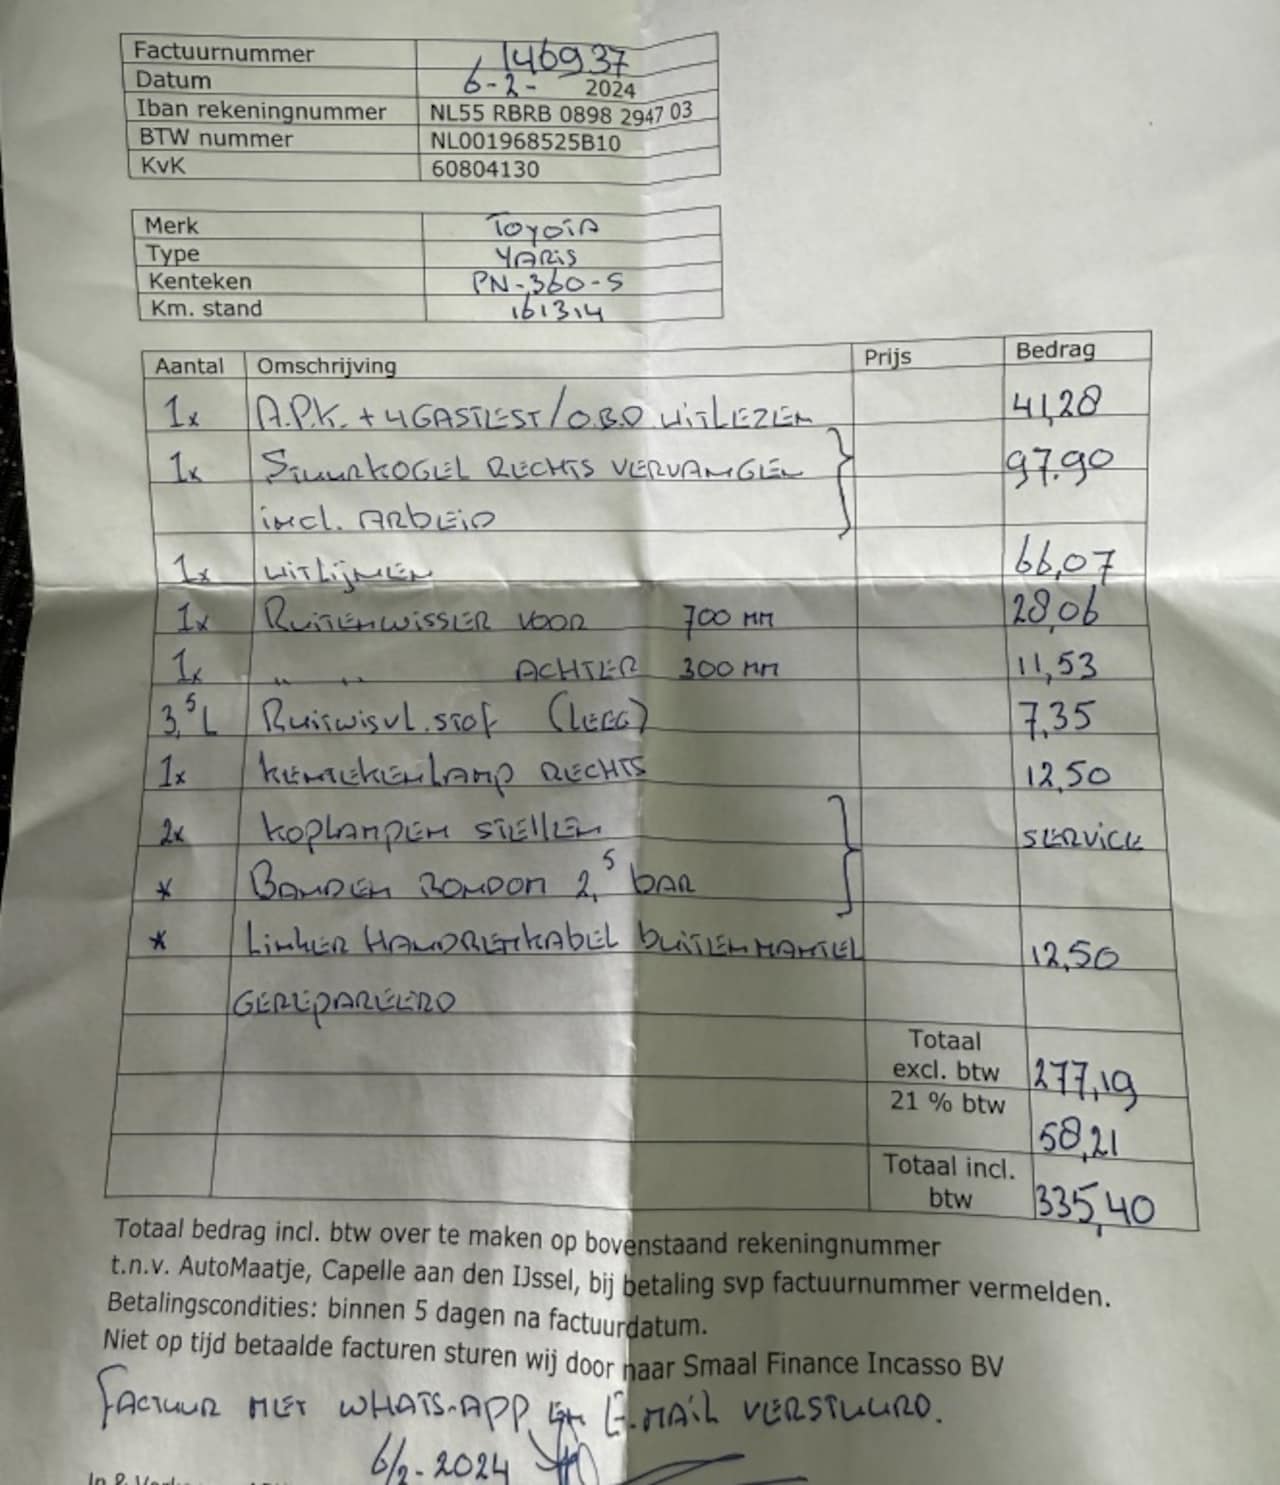 Factuurnummer 146937
Datum 6-2- 2024
Iban rekeningnummer NL55 RBRB 0898 2947 03
BTW nummer NL001968525B10
KvK 60804130
Merk TOYOTA
Type YARIS
Kenteken PN-360-S
Km. stand 161314
Aantal Omschrijving Prijs Bedrag
1x A.P.K. + 4GASTEST/O.B.D UITLEZEN 41,28
1x STUURKOGEL RECHTS VERVANGEN 97.90
incl. ARBEID
1x UITLIJNEN 66,07
1x RUITENWISSER VOOR 700 MM 28,06
1x " " ACHTER 300 MM 11,53
3,5 L RUITWISVL.STOF (LEEG) 7,35
1x KENTEKENLAMP RECHTS 12,50
2x KOPLAMPEN STELLEN SERVICE
* BANDEN RONDOM 2,5 BAR
* LINKER HANDREMKABEL BUITENMANTEL 12,50
GEREPAREERD
Totaal
excl. btw 277,19
21 % btw 58,21
Totaal incl.
btw 335,40
Totaal bedrag incl. btw over te maken op bovenstaand rekeningnummer
t.n.v. AutoMaatje, Capelle aan den IJssel, bij betaling svp factuurnummer vermelden.
Betalingscondities: binnen 5 dagen na factuurdatum.
Niet op tijd betaalde facturen sturen wij door naar Smaal Finance Incasso BV
FACTUUR MET WHATS-APP EN E-MAIL VERSTUURD.
6/2-2024